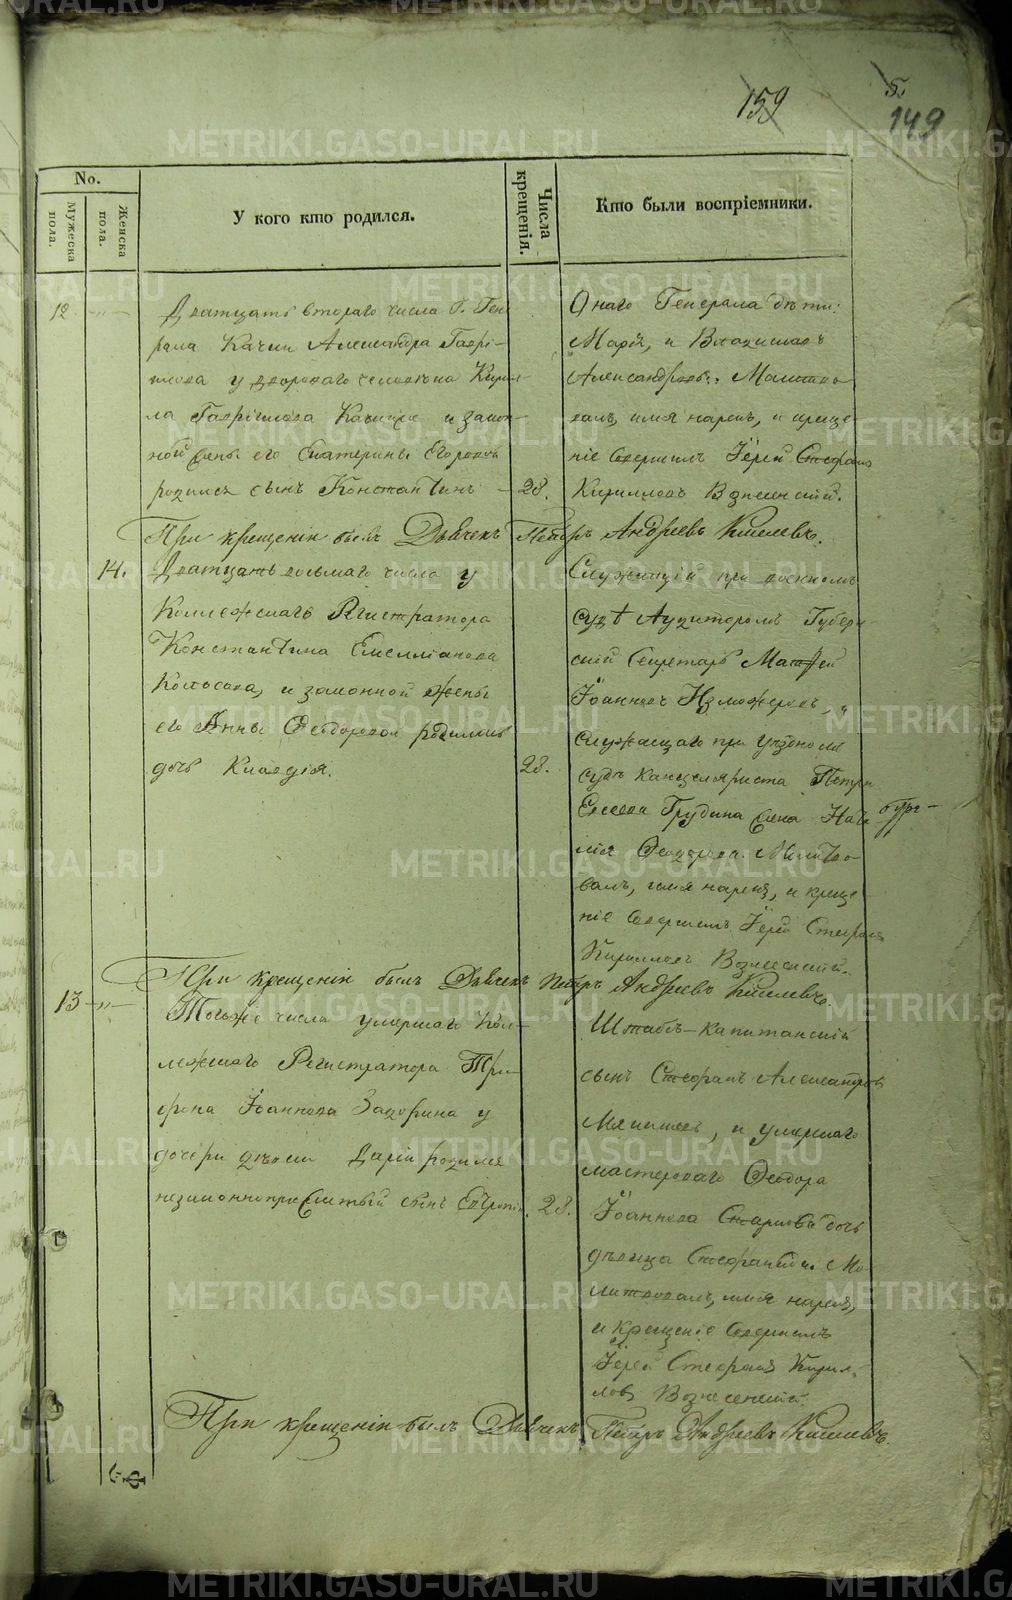 159
5.
149
No.
Мужеска пола.
Женска пола.
У кого кто родился.
Числа крещенія.
Кто были воспріемники.
12 -"-
Двятцать втораго числа Г. Гене
рала Качки Александра Гаврі-
илова у двороваго человѣка Кирил-
ла Гавріилова и закон-
ной жены его Екатерины Егоровой
родился сынъ Константинъ - 28.
Онаго Генерала дѣти:
Марія, и Владиславъ
Александровы. Молитво-
валъ, имя нарекъ, и креще-
ніе совершилъ Іерей Стефанъ
Кирилловъ Вознесенскій.
При крещеніи былъ Дьячекъ Петръ Андреевъ Киселевъ.
14.
Двятцать восьмаго числа у
Коллежскаго Регистратора
Константина Емелліанова
Колосова, и законной жены
его Анны Ѳеодоровой родилась
дочь Клавдія. 28.
Служащій при военномъ
судѣ Аудиторомъ Губерн-
скій Секретарь Матѳей
Іоанновъ, и
служащаго при уѣздномъ
судѣ Канцеляриста Петра
Елисеева Грудина жена Ната-
лія Ѳеодорова. Молитво-
валъ, имя нарекъ, и креще-
ніе совершилъ Іерей Стефанъ
Кирилловъ Вознесенскій.
При крещеніи былъ Дьячекъ Петръ Андреевъ Киселевъ.
13 -"-
Тогоже числа умершаго Кол-
лежскаго Регистратора Три-
фона Іоаннова у
дочери дѣвки Даріи родился
незаконноприжитый сынъ 28.
Штабсъ-Капитанскій
сынъ Стефанъ Александровъ
и умершаго
мастероваго Ѳеодора
Іоаннова дочь
дѣвица Стефанида. Мо-
литвовалъ, имя нарекъ,
и крещеніе совершилъ
Іерей Стефанъ Кирил-
ловъ Вознесенскій.
При крещеніи былъ Дьячекъ Петръ Андреевъ Киселевъ.
METRIKI.GASO-URAL.RU